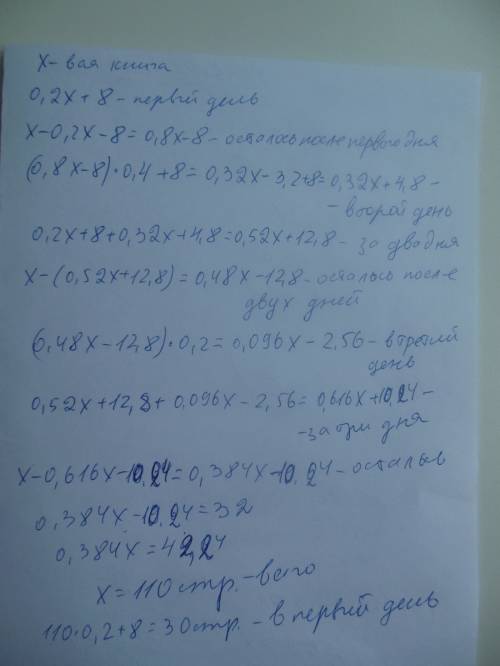 x - вая книга
0,2x + 8 - первый день
x - 0,2x - 8 = 0,8x - 8 - осталось после первого дня
(0,8x - 8) · 0,4 + 8 = 0,32x - 3,2 + 8 = 0,32x + 4,8 -
- второй день
0,2x + 8 + 0,32x + 4,8 = 0,52x + 12,8 - за два дня
x - (0,52x + 12,8) = 0,48x - 12,8 - осталось после
двух дней
(0,48x - 12,8) · 0,2 = 0,096x - 2,56 - в третий
день
0,52x + 12,8 + 0,096x - 2,56 = 0,616x + 10,24 -
- за три дня
x - 0,616x - 10,24 = 0,384x - 10,24 - осталось
0,384x - 10,24 = 32
0,384x = 42,24
x = 110 стр. - всего
110 · 0,2 + 8 = 30 стр. - в первый день